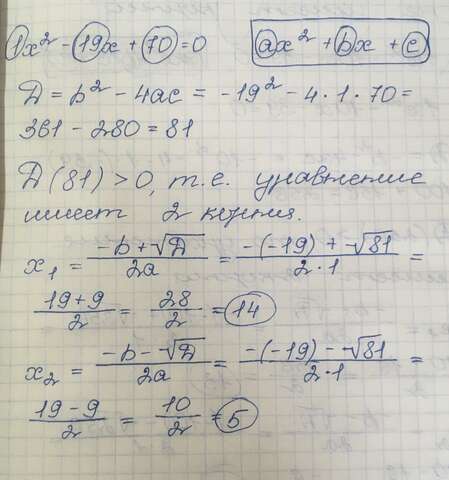 1x² - 19x + 70 = 0
ax² + bx + c
D = b² - 4ac = -19² - 4·1·70 =
361 - 280 = 81
D(81) > 0, т.е. уравнение
имеет 2 корня.
x₁ = (-b + √D)/(2a) = (-(-19) + √81)/(2·1) =
(19 + 9)/2 = 28/2 = 14
x₂ = (-b - √D)/(2a) = (-(-19) - √81)/(2·1) =
(19 - 9)/2 = 10/2 = 5